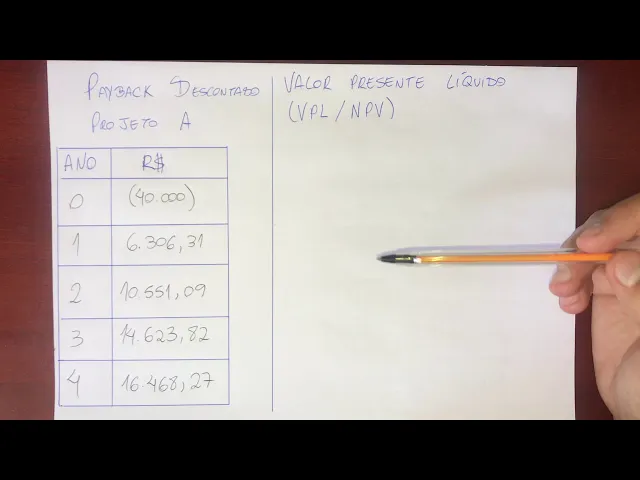 PAYBACK DESCONTADO
PROJETO A
ANO R$
0 (40.000)
1 6.306,31
2 10.551,09
3 14.623,82
4 16.468,27
VALOR PRESENTE LÍQUIDO
(VPL/NPV)